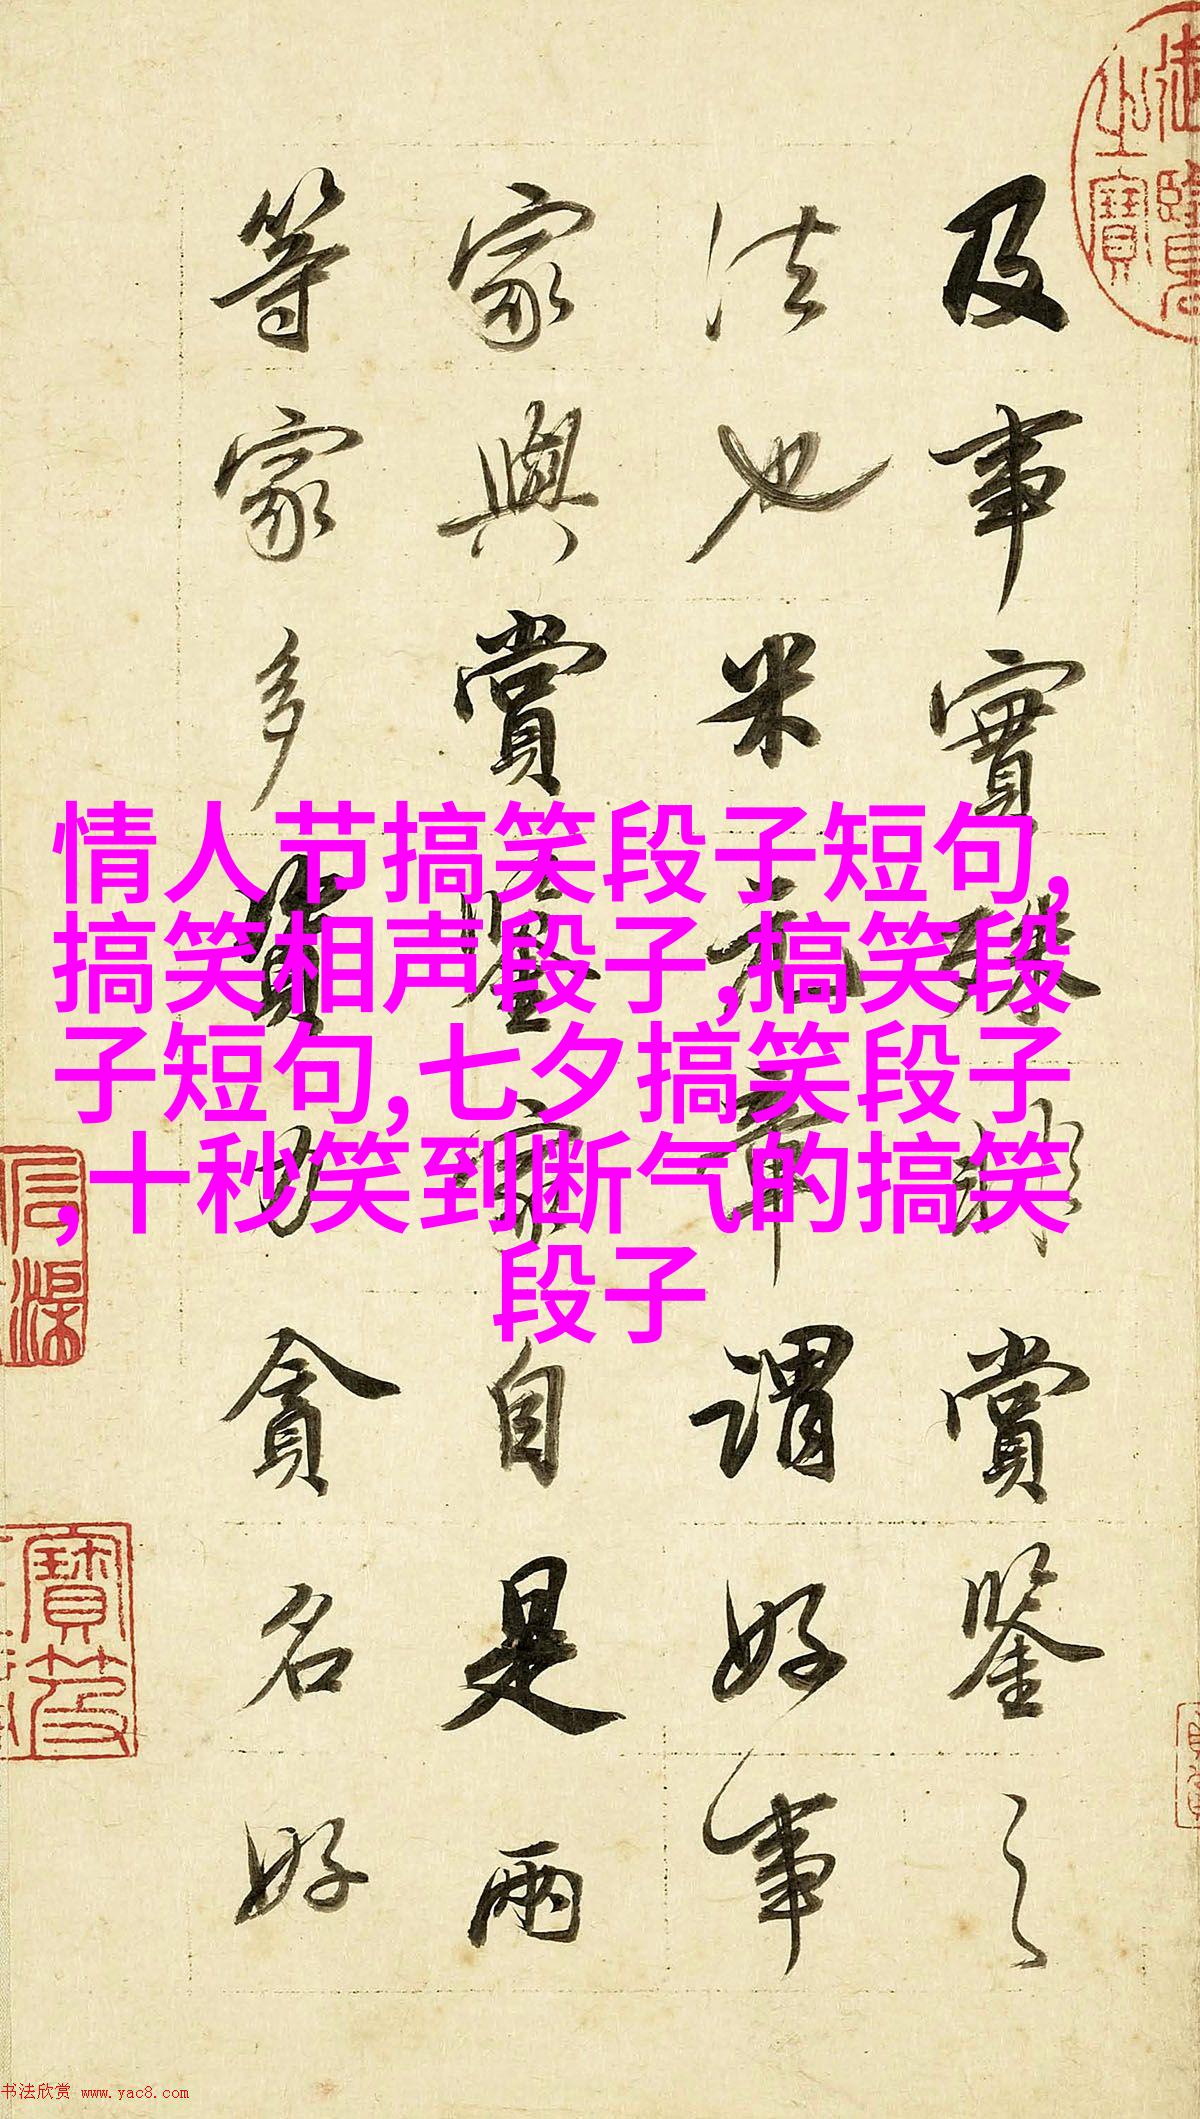 及事實殊非賞鑒之
法也米元章謂好事
家與賞鑒家自是兩
等家多資力貪名好
情人节搞笑段子短句,
搞笑相声段子,搞笑段
子短句,七夕搞笑段子
,十秒笑到断气的搞笑
段子
书法欣赏 www.yac8.com